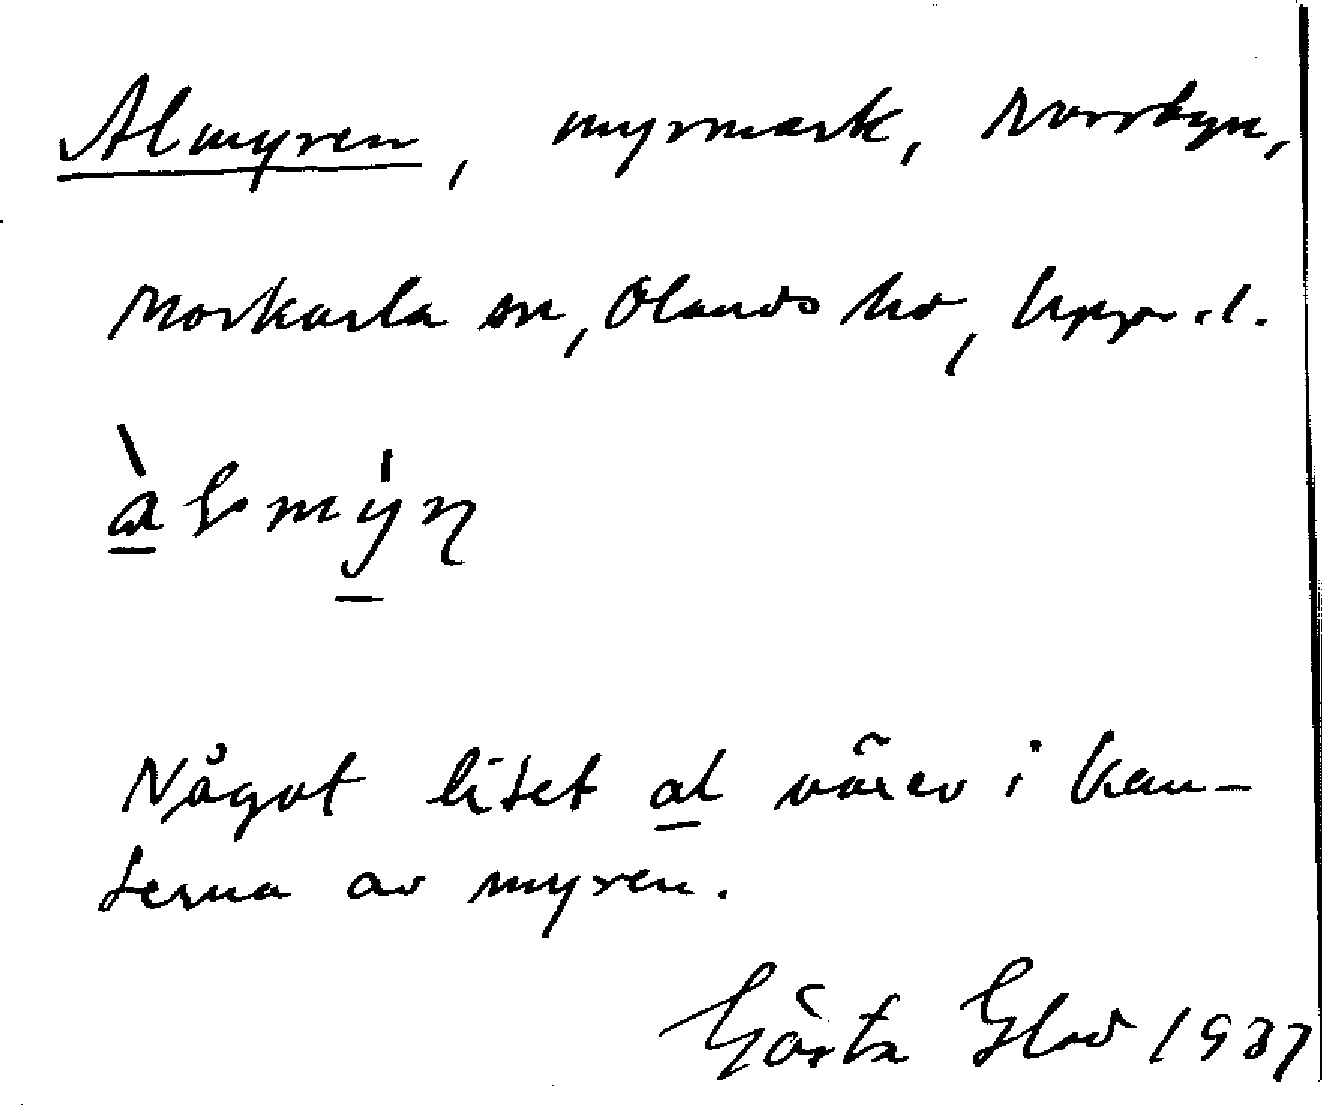 Almyren, myrmark, Norrbyn,
Morkarla sn, Olands hd, Uppl.
Något litet al växer i kan-
terna av myren.
Gösta Glad 1937